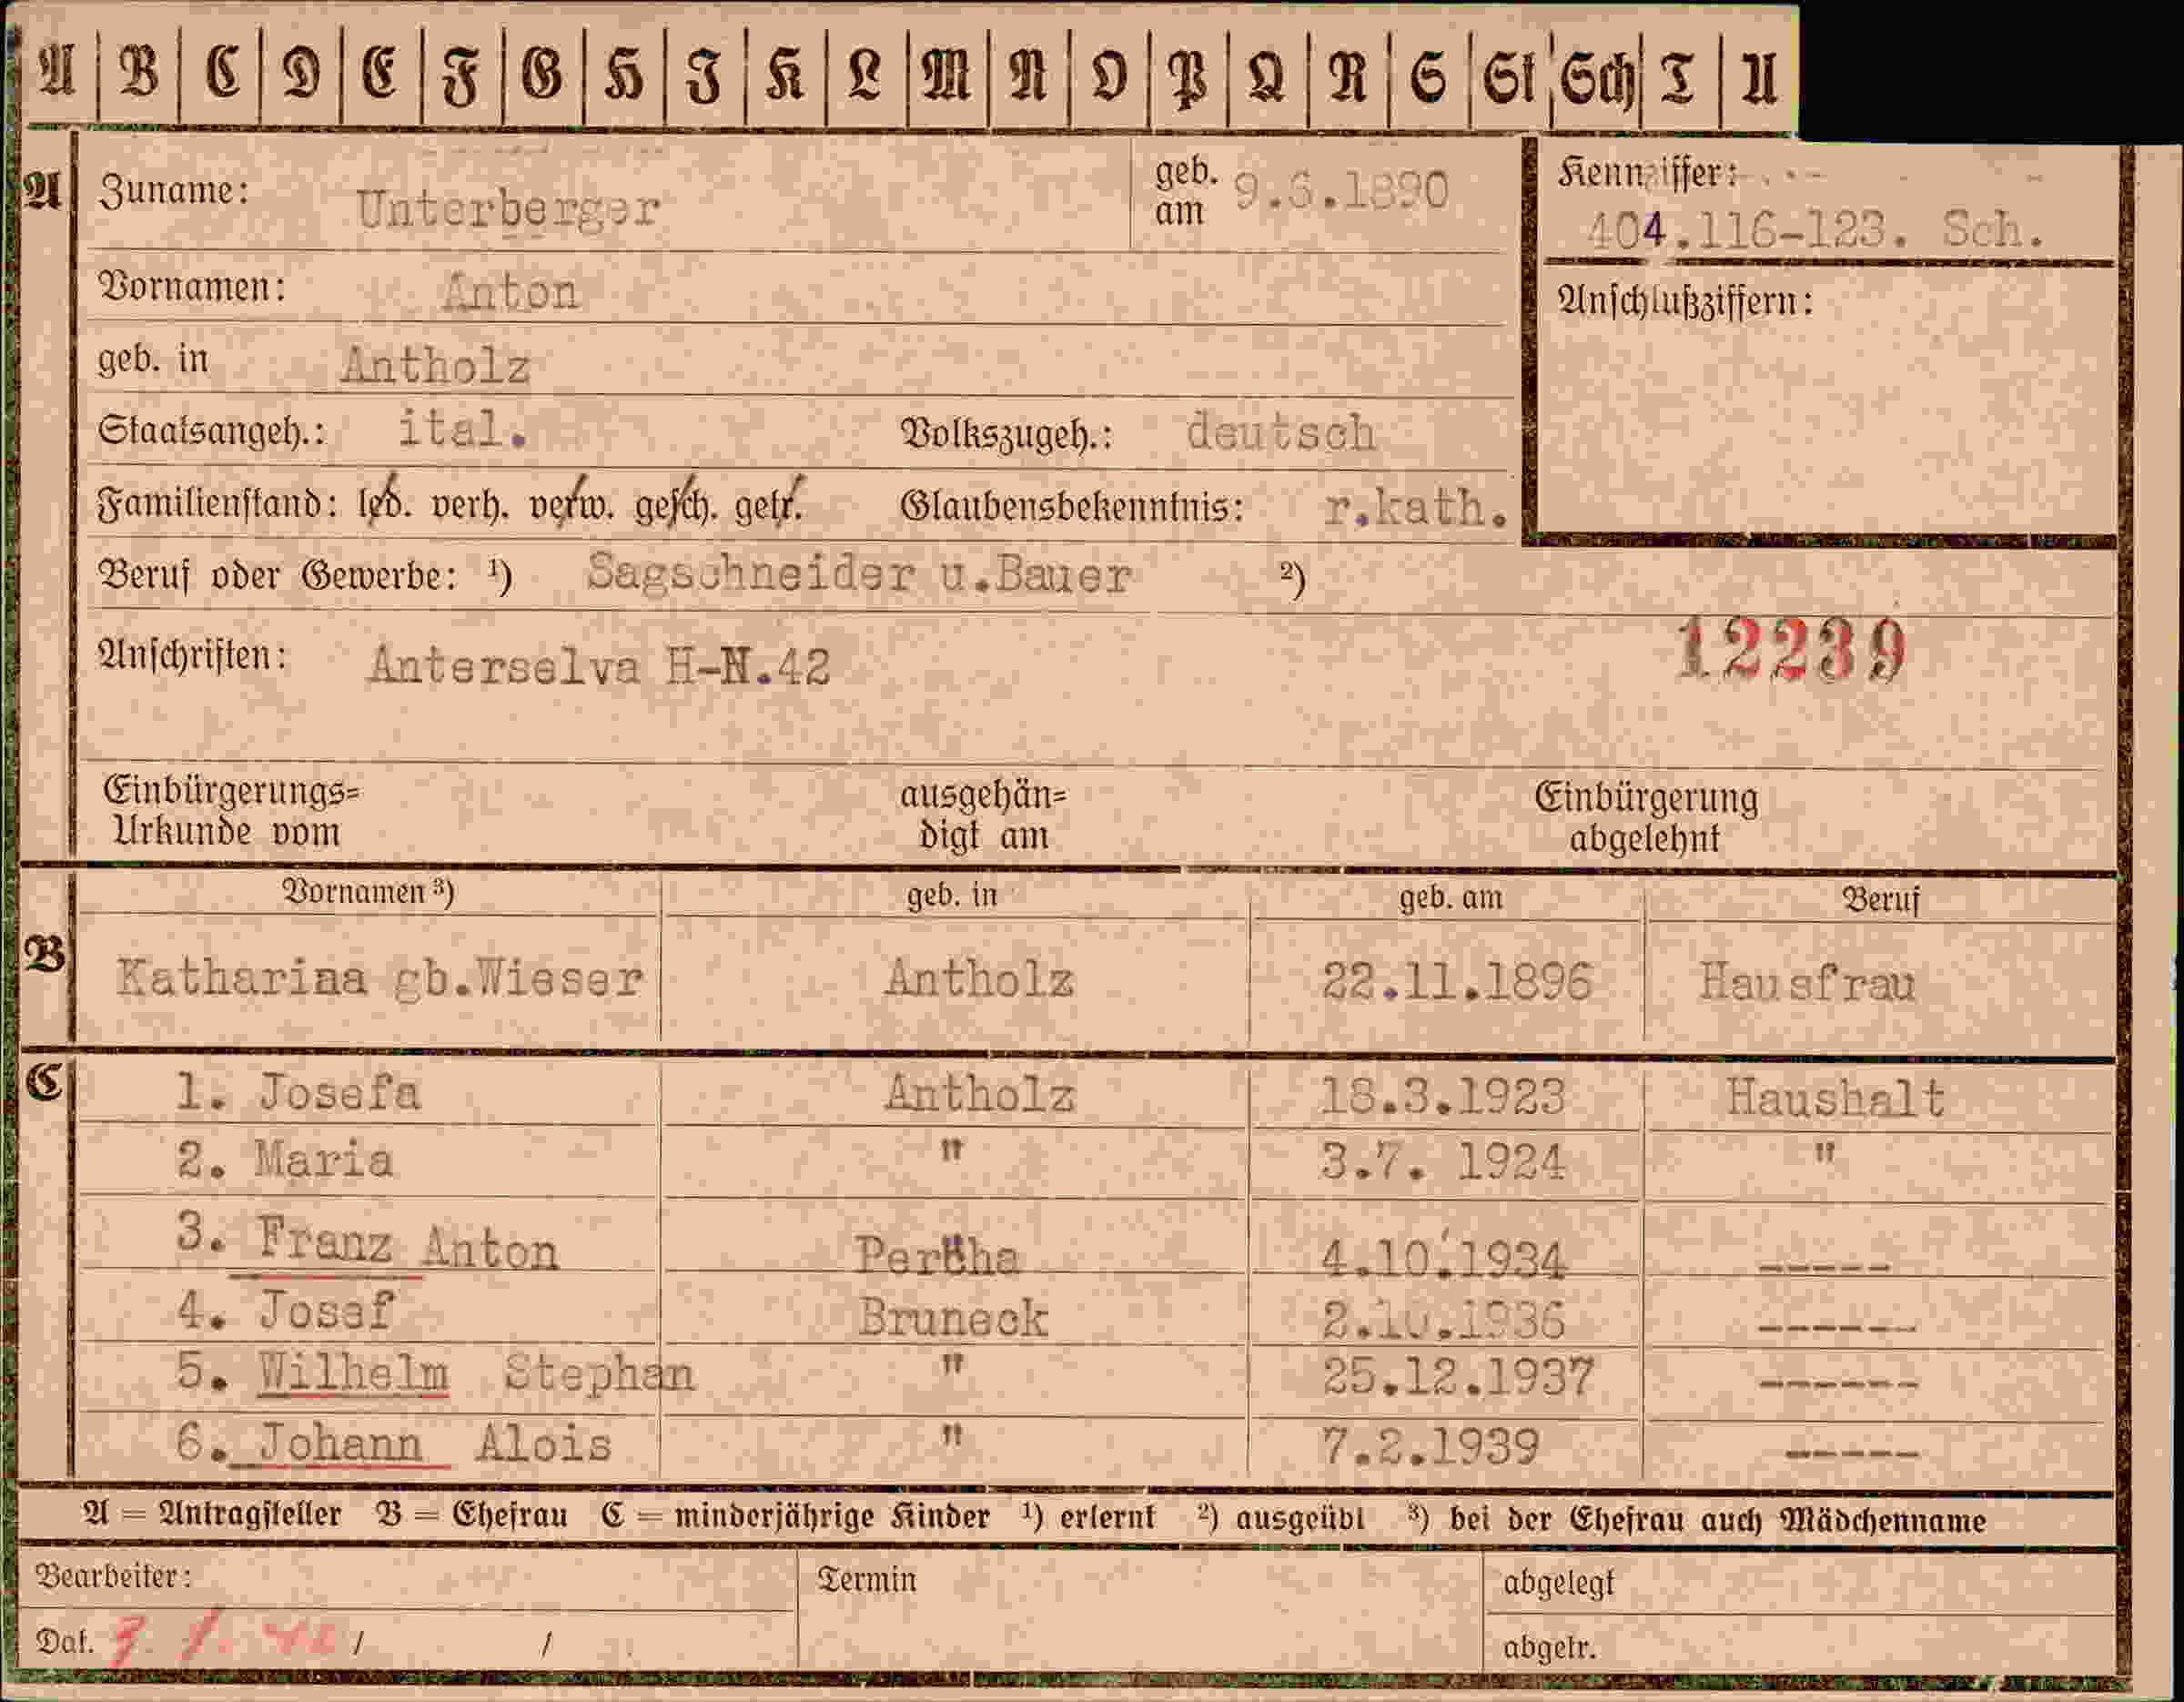 A B C D E F G H J K L M N O P Q R S St Sch T U
A Zuname: Unterberger geb. am 9.6.1890
Kennziffer: 404.116-123. Sch.
Vornamen: Anton
Anschlußziffern:
geb. in Antholz
Staatsangeh.: ital. Volkszugeh.: deutsch
Familienstand: led. verh. verw. gesch. getr. Glaubensbekenntnis: r.kath.
Beruf oder Gewerbe: ¹) Sagschneider u.Bauer ²)
12239
Anschriften: Anterselva H-N.42
Einbürgerungs= ausgehän= Einbürgerung
Urkunde vom digt am abgelehnt
Vornamen ³) geb. in geb. am Beruf
B Katharina gb.Wieser Antholz 22.11.1896 Hausfrau
C 1. Josefa Antholz 18.3.1923 Haushalt
2. Maria " 3.7. 1924 "
3. Franz Anton 4.10.1934 -----
4. Josef Bruneck 2.10.1936 ------
5. Wilhelm Stephan " 25.12.1937 ------
6. Johann Alois " 7.2.1939 -----
A = Antragsteller B = Ehefrau C = minderjährige Kinder ¹) erlernt ²) ausgeübt ³) bei der Ehefrau auch Mädchenname
Bearbeiter: Termin abgelegt
Dat. / / abgetr.